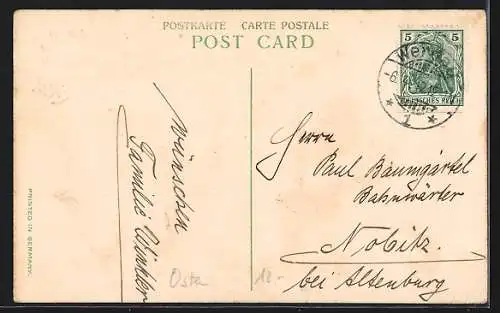 POSTKARTE CARTE POSTALE
POST CARD
5 5
DEUTSCHES REICH
1
wünschen
Familie Winkler
Herrn
Paul Baumgärtel
Bahnwärter
Nobitz
bei Altenburg
Osta
12.-
PRINTED IN GERMANY.